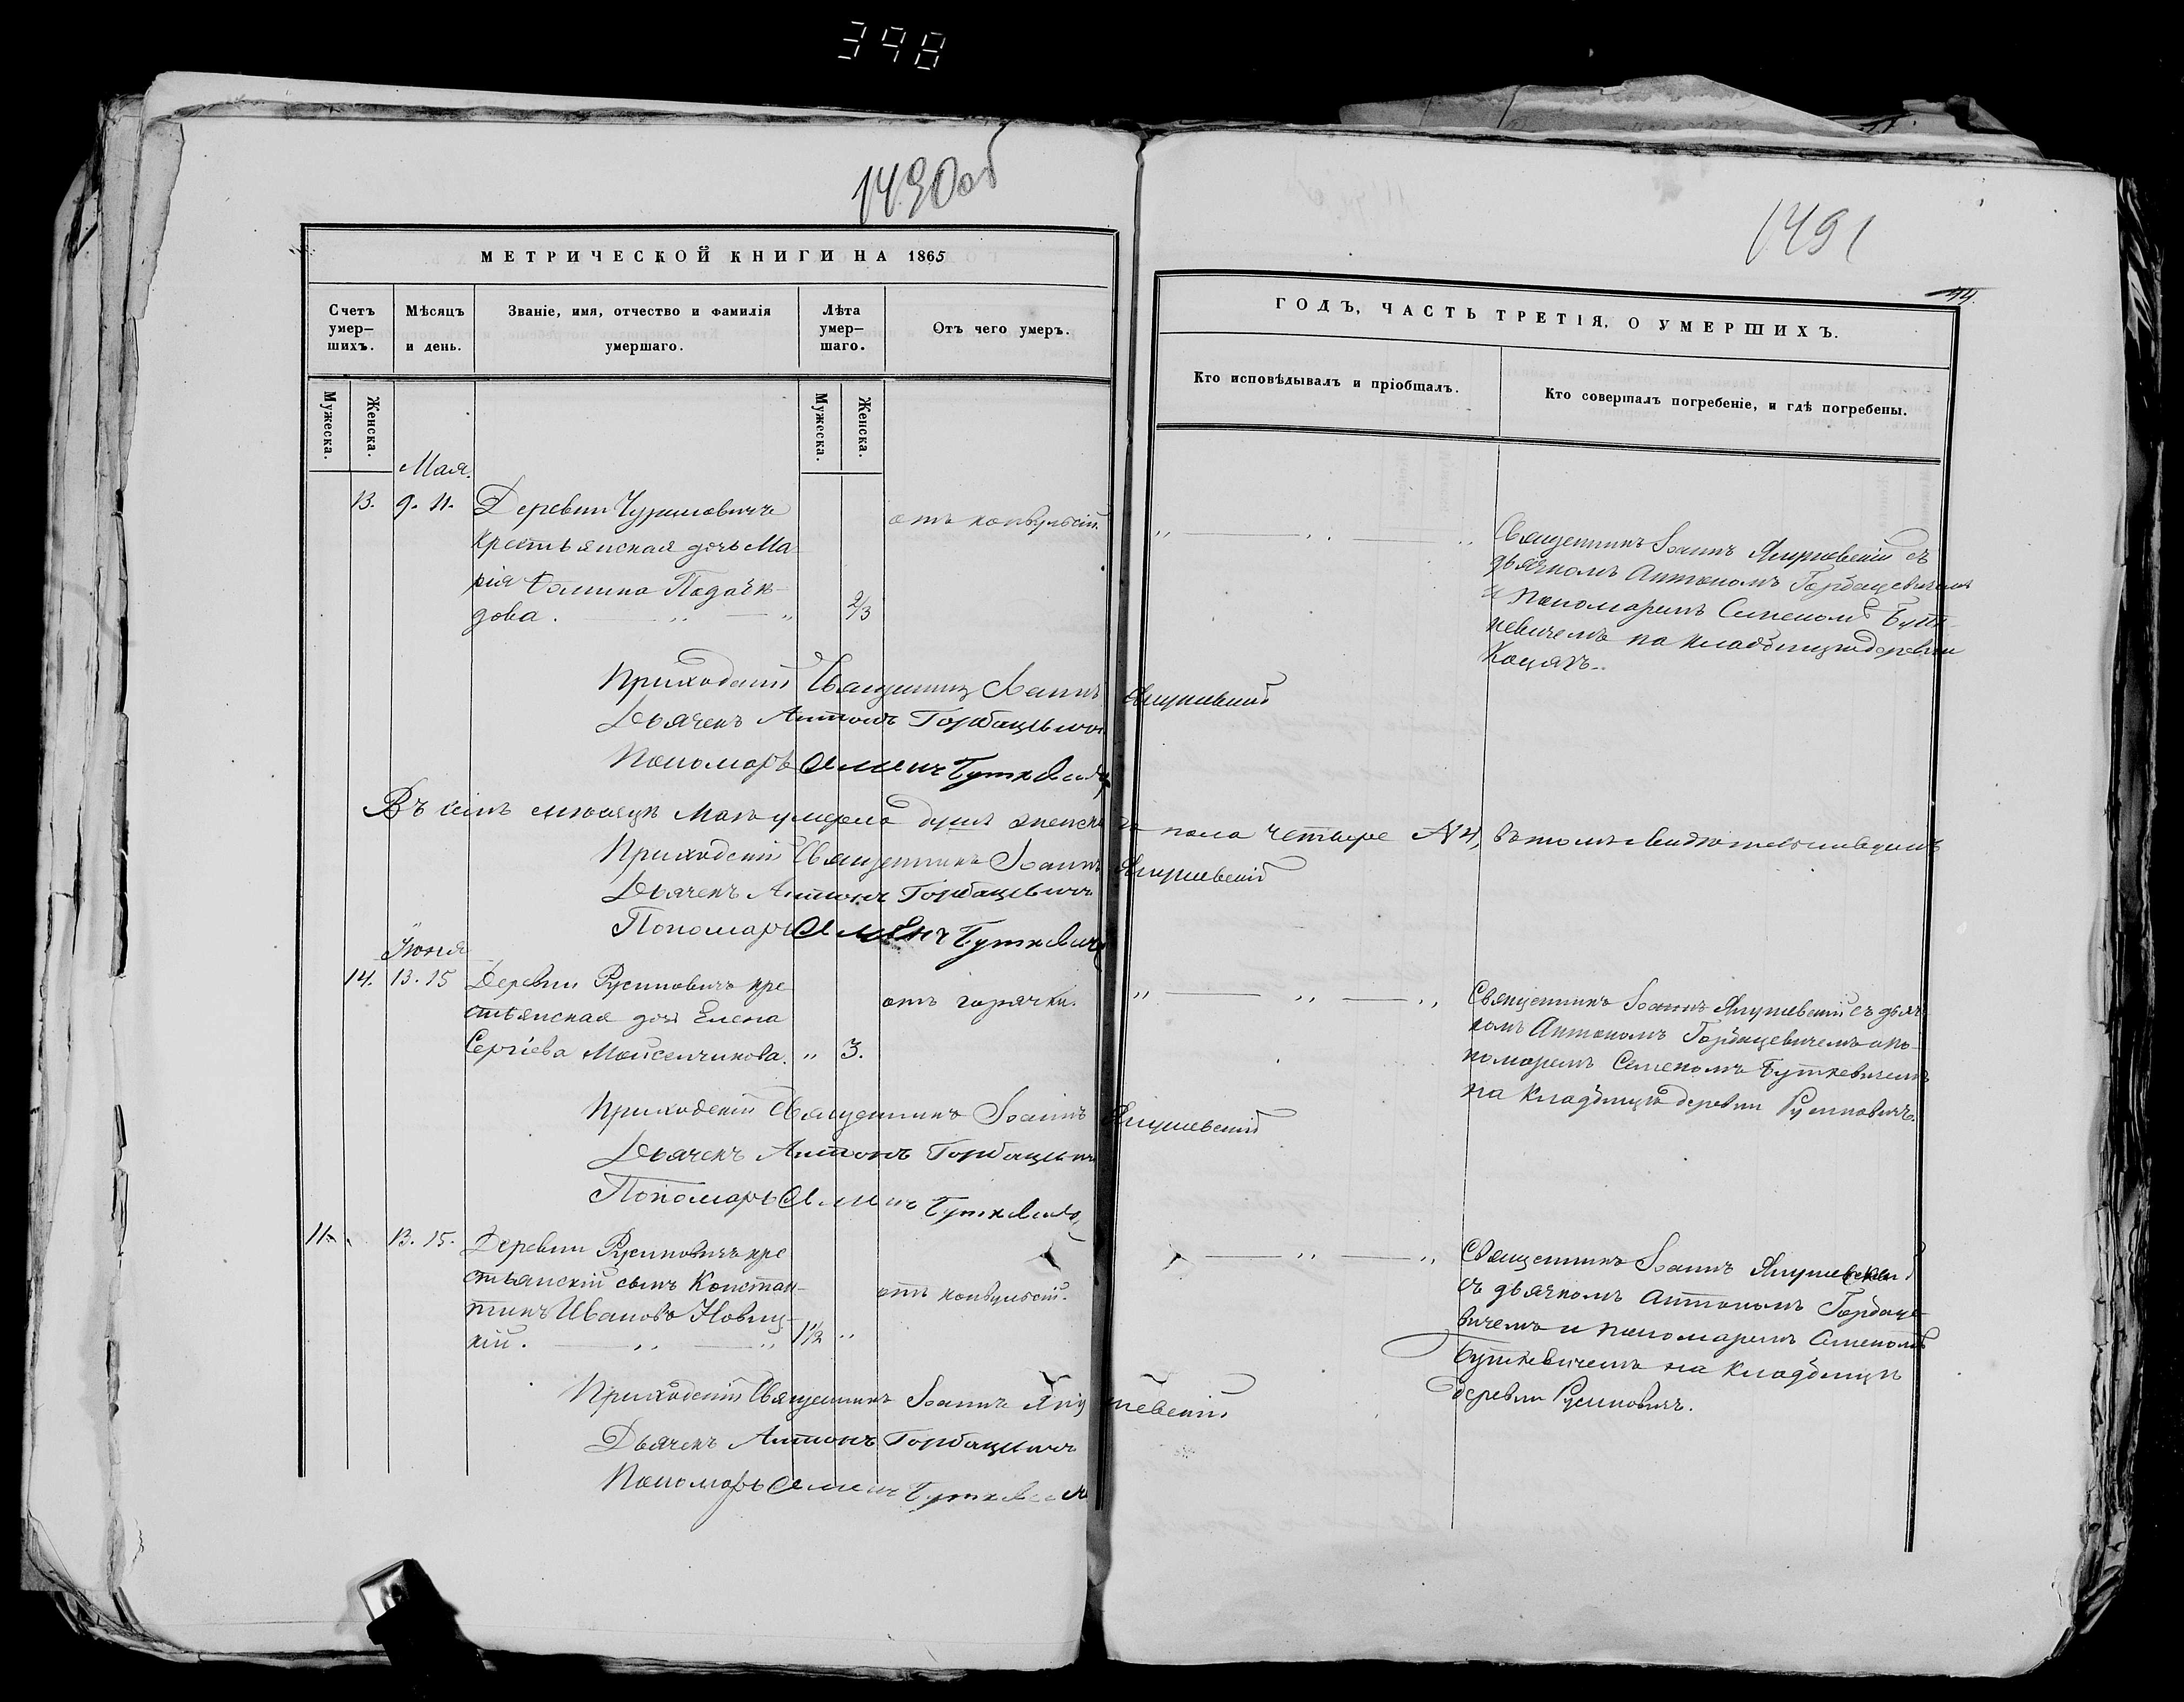 398
1490 об
1491
14.
МЕТРИЧЕСКОЙ КНИГИ НА 1865
ГОДЪ, ЧАСТЬ ТРЕТІЯ, О УМЕРШИХЪ.
Счетъ умер–шихъ.
Мѣсяцъ и день.
Званіе, имя, отчество и фамилія умершаго.
Лѣта умер–шаго.
Отъ чего умеръ.
Кто исповѣдывалъ и пріобщалъ.
Кто совершалъ погребеніе, и гдѣ погребены.
Мужеска.
Женска.
Мужеска.
Женска.
Мая.
13. 9. 11. Деревни
крестьянская дочь Ма
рія Фомина
дова.
2/3
отъ конвульсій.
Священникъ Іоаннъ Янушевскій съ
дьячкомъ Антономъ Горбацевичемъ
и пономаремъ Семеномъ Бут-
кевичемъ на кладбищѣ деревни
Приходскій Священникъ Іоаннъ Янушевскій
Дьячекъ Антонъ Горбацевичъ
Пономарь Семенъ Буткевичъ
Въ семъ мѣсяцѣ Маѣ умерло душъ женска пола четыре №4, въ томъ свидѣтельствуемъ
Приходскій Священникъ Іоаннъ Янушевскій
Дьячекъ Антонъ Горбацевичъ
Пономарь Семенъ Буткевичъ
Іюня
14. 13. 15 Деревни Русиновичъ кре
стьянская дочь Елена
Сергіева Моисеенчикова. " 3.
отъ горячки.
Священникъ Іоаннъ Янушевскій съ дьяч
комъ Антономъ Горбацевичемъ и по-
номаремъ Семеномъ Буткевичемъ
на кладбищѣ деревни Русиновичъ.
Приходскій Священникъ Іоаннъ Янушевскій
Дьячекъ Антонъ Горбацевичъ
Пономарь Семенъ Буткевичъ
11. 13. 15. Деревни Русиновичъ кре
стьянскій сынъ Констан-
тинъ Ивановъ Новиц-
кій.
1 1/2 "
отъ конвульсій.
Священникъ Іоаннъ Янушевскій
съ дьячкомъ Антономъ Горбаце-
вичемъ и пономаремъ Семеномъ
Буткевичемъ на кладбищѣ
деревни Русиновичъ.
Приходскій Священникъ Іоаннъ Янушевскій
Дьячекъ Антонъ Горбацевичъ
Пономарь Семенъ Буткевичъ